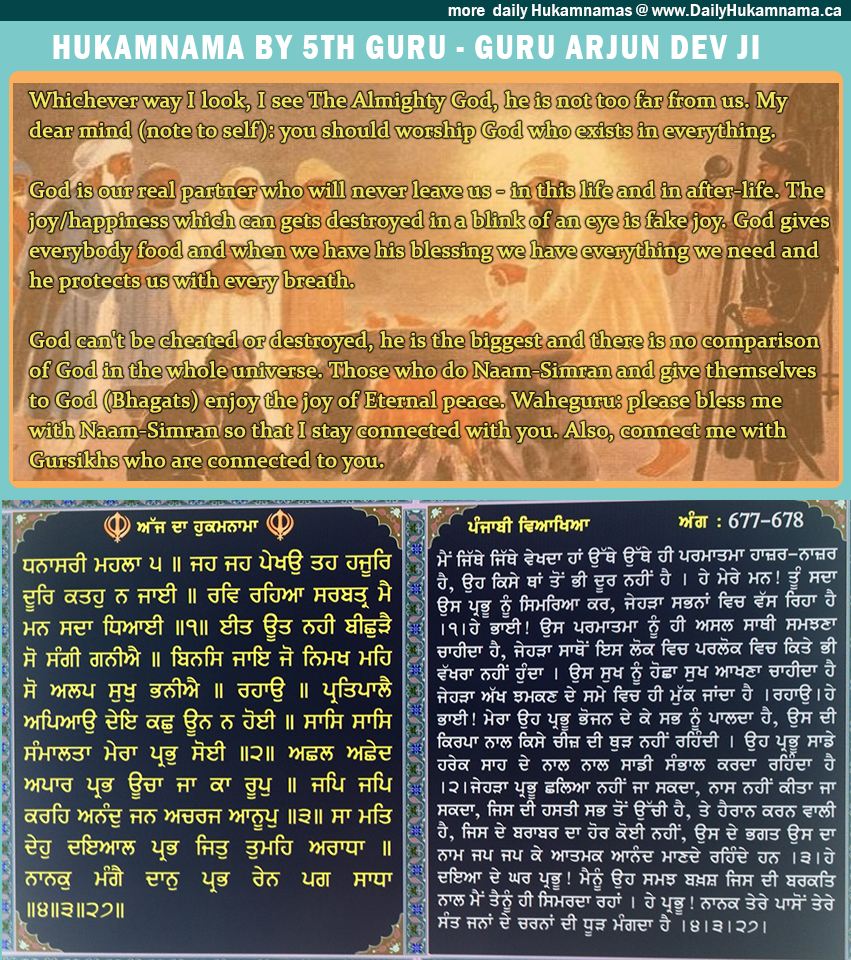 more daily Hukamnamas @ www.DailyHukamnama.ca
HUKAMNAMA BY 5TH GURU - GURU ARJUN DEV JI
Whichever way I look, I see The Almighty God, he is not too far from us. My
dear mind (note to self): you should worship God who exists in everything.
God is our real partner who will never leave us - in this life and in after-life. The
joy/happiness which can gets destroyed in a blink of an eye is fake joy. God gives
everybody food and when we have his blessing we have everything we need and
he protects us with every breath.
God can't be cheated or destroyed, he is the biggest and there is no comparison
of God in the whole universe. Those who do Naam-Simran and give themselves
to God (Bhagats) enjoy the joy of Eternal peace. Waheguru: please bless me
with Naam-Simran so that I stay connected with you. Also, connect me with
Gursikhs who are connected to you.
ਅੱਜ ਦਾ ਹੁਕਮਨਾਮਾ
ਧਨਾਸਰੀ ਮਹਲਾ ੫ ॥ ਜਹ ਜਹ ਪੇਖਉ ਤਹ ਹਜੂਰਿ
ਦੂਰਿ ਕਤਹੁ ਨ ਜਾਈ ॥ ਰਵਿ ਰਹਿਆ ਸਰਬਤ੍ਰ ਮੈ
ਮਨ ਸਦਾ ਧਿਆਈ ॥੧॥ ਈਤ ਊਤ ਨਹੀ ਬੀਛੁੜੈ
ਸੋ ਸੰਗੀ ਗਨੀਐ ॥ ਬਿਨਸਿ ਜਾਇ ਜੋ ਨਿਮਖ ਮਹਿ
ਸੋ ਅਲਪ ਸੁਖੁ ਭਨੀਐ ॥ ਰਹਾਉ ॥ ਪ੍ਰਤਿਪਾਲੈ
ਅਪਿਆਉ ਦੇਇ ਕਛੁ ਊਨ ਨ ਹੋਈ ॥ ਸਾਸਿ ਸਾਸਿ
ਸੰਮਾਲਤਾ ਮੇਰਾ ਪ੍ਰਭੁ ਸੋਈ ॥੨॥ ਅਛਲ ਅਛੇਦ
ਅਪਾਰ ਪ੍ਰਭ ਊਚਾ ਜਾ ਕਾ ਰੂਪੁ ॥ ਜਪਿ ਜਪਿ
ਕਰਹਿ ਅਨੰਦੁ ਜਨ ਅਚਰਜ ਆਨੂਪੁ ॥੩॥ ਸਾ ਮਤਿ
ਦੇਹੁ ਦਇਆਲ ਪ੍ਰਭ ਜਿਤੁ ਤੁਮਹਿ ਅਰਾਧਾ ॥
ਨਾਨਕੁ ਮੰਗੈ ਦਾਨੁ ਪ੍ਰਭ ਰੇਨ ਪਗ ਸਾਧਾ
॥੪॥੩॥੨੭॥
ਪੰਜਾਬੀ ਵਿਆਖਿਆ ਅੰਗ : 677-678
ਮੈਂ ਜਿੱਥੇ ਜਿੱਥੇ ਵੇਖਦਾ ਹਾਂ ਉੱਥੇ ਉੱਥੇ ਹੀ ਪਰਮਾਤਮਾ ਹਾਜ਼ਰ-ਨਾਜ਼ਰ
ਹੈ, ਉਹ ਕਿਸੇ ਥਾਂ ਤੋਂ ਭੀ ਦੂਰ ਨਹੀਂ ਹੈ । ਹੇ ਮੇਰੇ ਮਨ! ਤੂੰ ਸਦਾ
ਉਸ ਪ੍ਰਭੂ ਨੂੰ ਸਿਮਰਿਆ ਕਰ, ਜੇਹੜਾ ਸਭਨਾਂ ਵਿਚ ਵੱਸ ਰਿਹਾ ਹੈ
।੧।ਹੇ ਭਾਈ! ਉਸ ਪਰਮਾਤਮਾ ਨੂੰ ਹੀ ਅਸਲ ਸਾਥੀ ਸਮਝਣਾ
ਚਾਹੀਦਾ ਹੈ, ਜੇਹੜਾ ਸਾਥੋਂ ਇਸ ਲੋਕ ਵਿਚ ਪਰਲੋਕ ਵਿਚ ਕਿਤੇ ਭੀ
ਵੱਖਰਾ ਨਹੀਂ ਹੁੰਦਾ । ਉਸ ਸੁਖ ਨੂੰ ਹੋਛਾ ਸੁਖ ਆਖਣਾ ਚਾਹੀਦਾ ਹੈ
ਜੇਹੜਾ ਅੱਖ ਝਮਕਣ ਦੇ ਸਮੇ ਵਿਚ ਹੀ ਮੁੱਕ ਜਾਂਦਾ ਹੈ ।ਰਹਾਉ।ਹੇ
ਭਾਈ! ਮੇਰਾ ਉਹ ਪ੍ਰਭੂ ਭੋਜਨ ਦੇ ਕੇ ਸਭ ਨੂੰ ਪਾਲਦਾ ਹੈ, ਉਸ ਦੀ
ਕਿਰਪਾ ਨਾਲ ਕਿਸੇ ਚੀਜ਼ ਦੀ ਥੁੜ ਨਹੀਂ ਰਹਿੰਦੀ । ਉਹ ਪ੍ਰਭੂ ਸਾਡੇ
ਹਰੇਕ ਸਾਹ ਦੇ ਨਾਲ ਨਾਲ ਸਾਡੀ ਸੰਭਾਲ ਕਰਦਾ ਰਹਿੰਦਾ ਹੈ
।੨।ਜੇਹੜਾ ਪ੍ਰਭੂ ਛਲਿਆ ਨਹੀਂ ਜਾ ਸਕਦਾ, ਨਾਸ ਨਹੀਂ ਕੀਤਾ ਜਾ
ਸਕਦਾ, ਜਿਸ ਦੀ ਹਸਤੀ ਸਭ ਤੋਂ ਉੱਚੀ ਹੈ, ਤੇ ਹੈਰਾਨ ਕਰਨ ਵਾਲੀ
ਹੈ, ਜਿਸ ਦੇ ਬਰਾਬਰ ਦਾ ਹੋਰ ਕੋਈ ਨਹੀਂ, ਉਸ ਦੇ ਭਗਤ ਉਸ ਦਾ
ਨਾਮ ਜਪ ਜਪ ਕੇ ਆਤਮਕ ਆਨੰਦ ਮਾਣਦੇ ਰਹਿੰਦੇ ਹਨ ।੩।ਹੇ
ਦਇਆ ਦੇ ਘਰ ਪ੍ਰਭੂ! ਮੈਨੂੰ ਉਹ ਸਮਝ ਬਖ਼ਸ਼ ਜਿਸ ਦੀ ਬਰਕਤਿ
ਨਾਲ ਮੈਂ ਤੈਨੂੰ ਹੀ ਸਿਮਰਦਾ ਰਹਾਂ । ਹੇ ਪ੍ਰਭੂ! ਨਾਨਕ ਤੇਰੇ ਪਾਸੋਂ ਤੇਰੇ
ਸੰਤ ਜਨਾਂ ਦੇ ਚਰਨਾਂ ਦੀ ਧੂੜ ਮੰਗਦਾ ਹੈ ।੪।੩।੨੭।